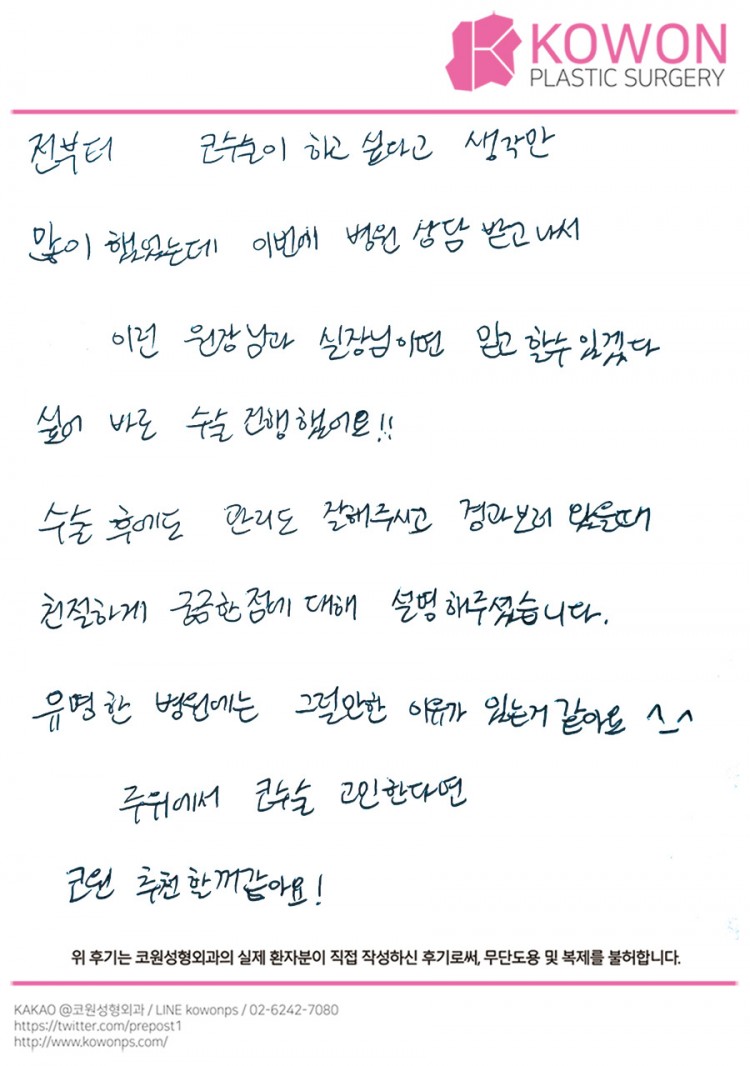 KOWON
PLASTIC SURGERY
전부터 코수술이 하고 싶다고 생각만
많이 했었는데 이번에 병원 상담 받고 나서
이런 원장님과 실장님이면 믿고 할수 있겠다
싶어 바로 수술 진행했어요!!
수술 후에도 관리도 잘해주시고 경과보러 왔을때
친절하게 궁금한점에 대해 설명해주셨습니다.
유명한 병원에는 그럴만한 이유가 있는거 같아요 ^_^
주위에서 코수술 고민한다면
코원 추천할꺼같아요!
위 후기는 코원성형외과의 실제 환자분이 직접 작성하신 후기로써, 무단도용 및 복제를 불허합니다.
KAKAO @코원성형외과 / LINE kowonps / 02-6242-7080
https://twitter.com/prepost1
http://www.kowonps.com/